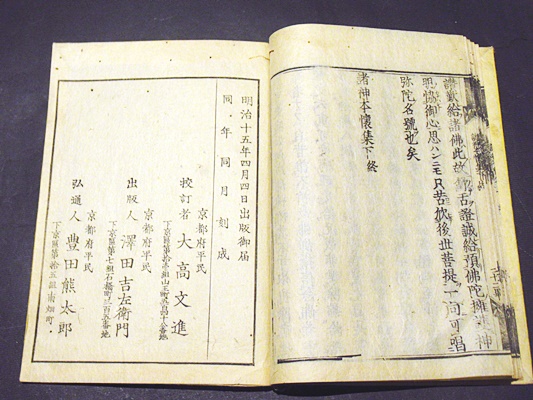 讃歎給諸佛此故舌證誠給預佛陀擁神
明恊御心思ハンニモ只苦欣後世菩提一向可唱
弥陀名號也矣
諸神本懐集下終
明治十五年四月四日出版御届
同・年同月刻成
京都府平民
校訂者 大高文進
京都府平民
出版人 澤田吉左衛門
下京區第七組石橋町三百五番地
京都府平民
弘通人 豊田熊太郎
下京區第拾五組南畑町